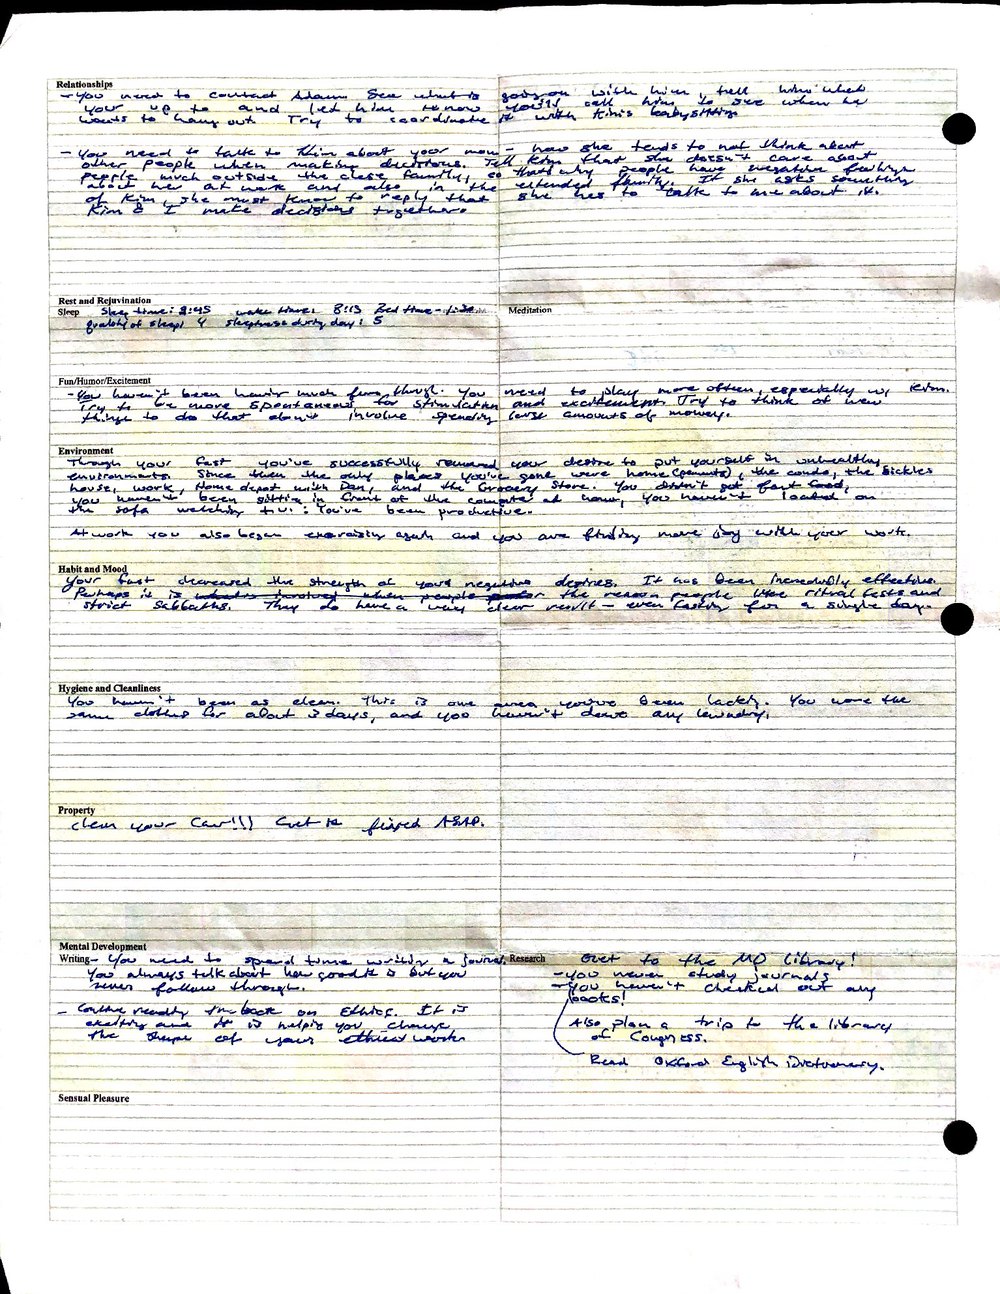 Relationships
- You need to contact Adam. See what is going on with him, tell him what
your up to and let him know you'll call him to see when he
wants to hang out. Try to coordinate it with Kim's babysitting.
- You need to talk to Kim about your mom - how she tends to not think about
other people when making decisions. Tell Kim that she doesn't care about
people much outside the close family, so that's why people have negative feelings
about her at work and also in the extended family. If she asks something
of Kim, she must know to reply that she has to talk to me about it.
Kim & I make decisions together.
Rest and Rejuvination
Sleep Sleep time: 2:45 wake time: 8:15 Bed time -
Meditation
quality of sleep: 4 sleepiness during day: 5
Fun/Humor/Excitement
- You haven't been having much fun though. You need to play more often, especially w/ Kim.
Try to be more spontaneous for stimulation and excitement. Try to think of new
things to do that don't involve spending large amounts of money.
Environment
Through your fast you've successfully removed your desire to put yourself in unhealthy
environments. Since then the only places you've gone were home (parents), the condo, the Sickles
house, work, Home depot with Dan, and the Grocery Store. You didn't get fast food,
You haven't been sitting in front of the computer at home, you haven't loafed on
the sofa watching t.v.: You've been productive.
At work you also began exercising again and you are finding more joy with your work.
Habit and Mood
Your fast decreased the strength of your negative desires. It has been incredibly effective.
Perhaps it is when people or the reason people like ritual fasts and
strict Sabbaths. They do have a very clear result - even fasting for a single day.
Hygiene and Cleanliness
You haven't been as clean. This is one area you've been lackg. You wore the
same clothes for about 3 days, and you haven't done any laundry.
Property
Clean your Car!!! Get it fixed ASAP.
Mental Development
Writing - You need to spend time writing a journal.
You always talk about how good it is but you
never follow through.
- Continue reading the book on Ethics. It is
exciting and it is helping you change
the shape of your ethical works
Research Get to the MD Library!
- You never study journals
- You haven't checked out any
books!
Also plan a trip to the library
of Congress.
Read Oxford English Dictionary.
Sensual Pleasure